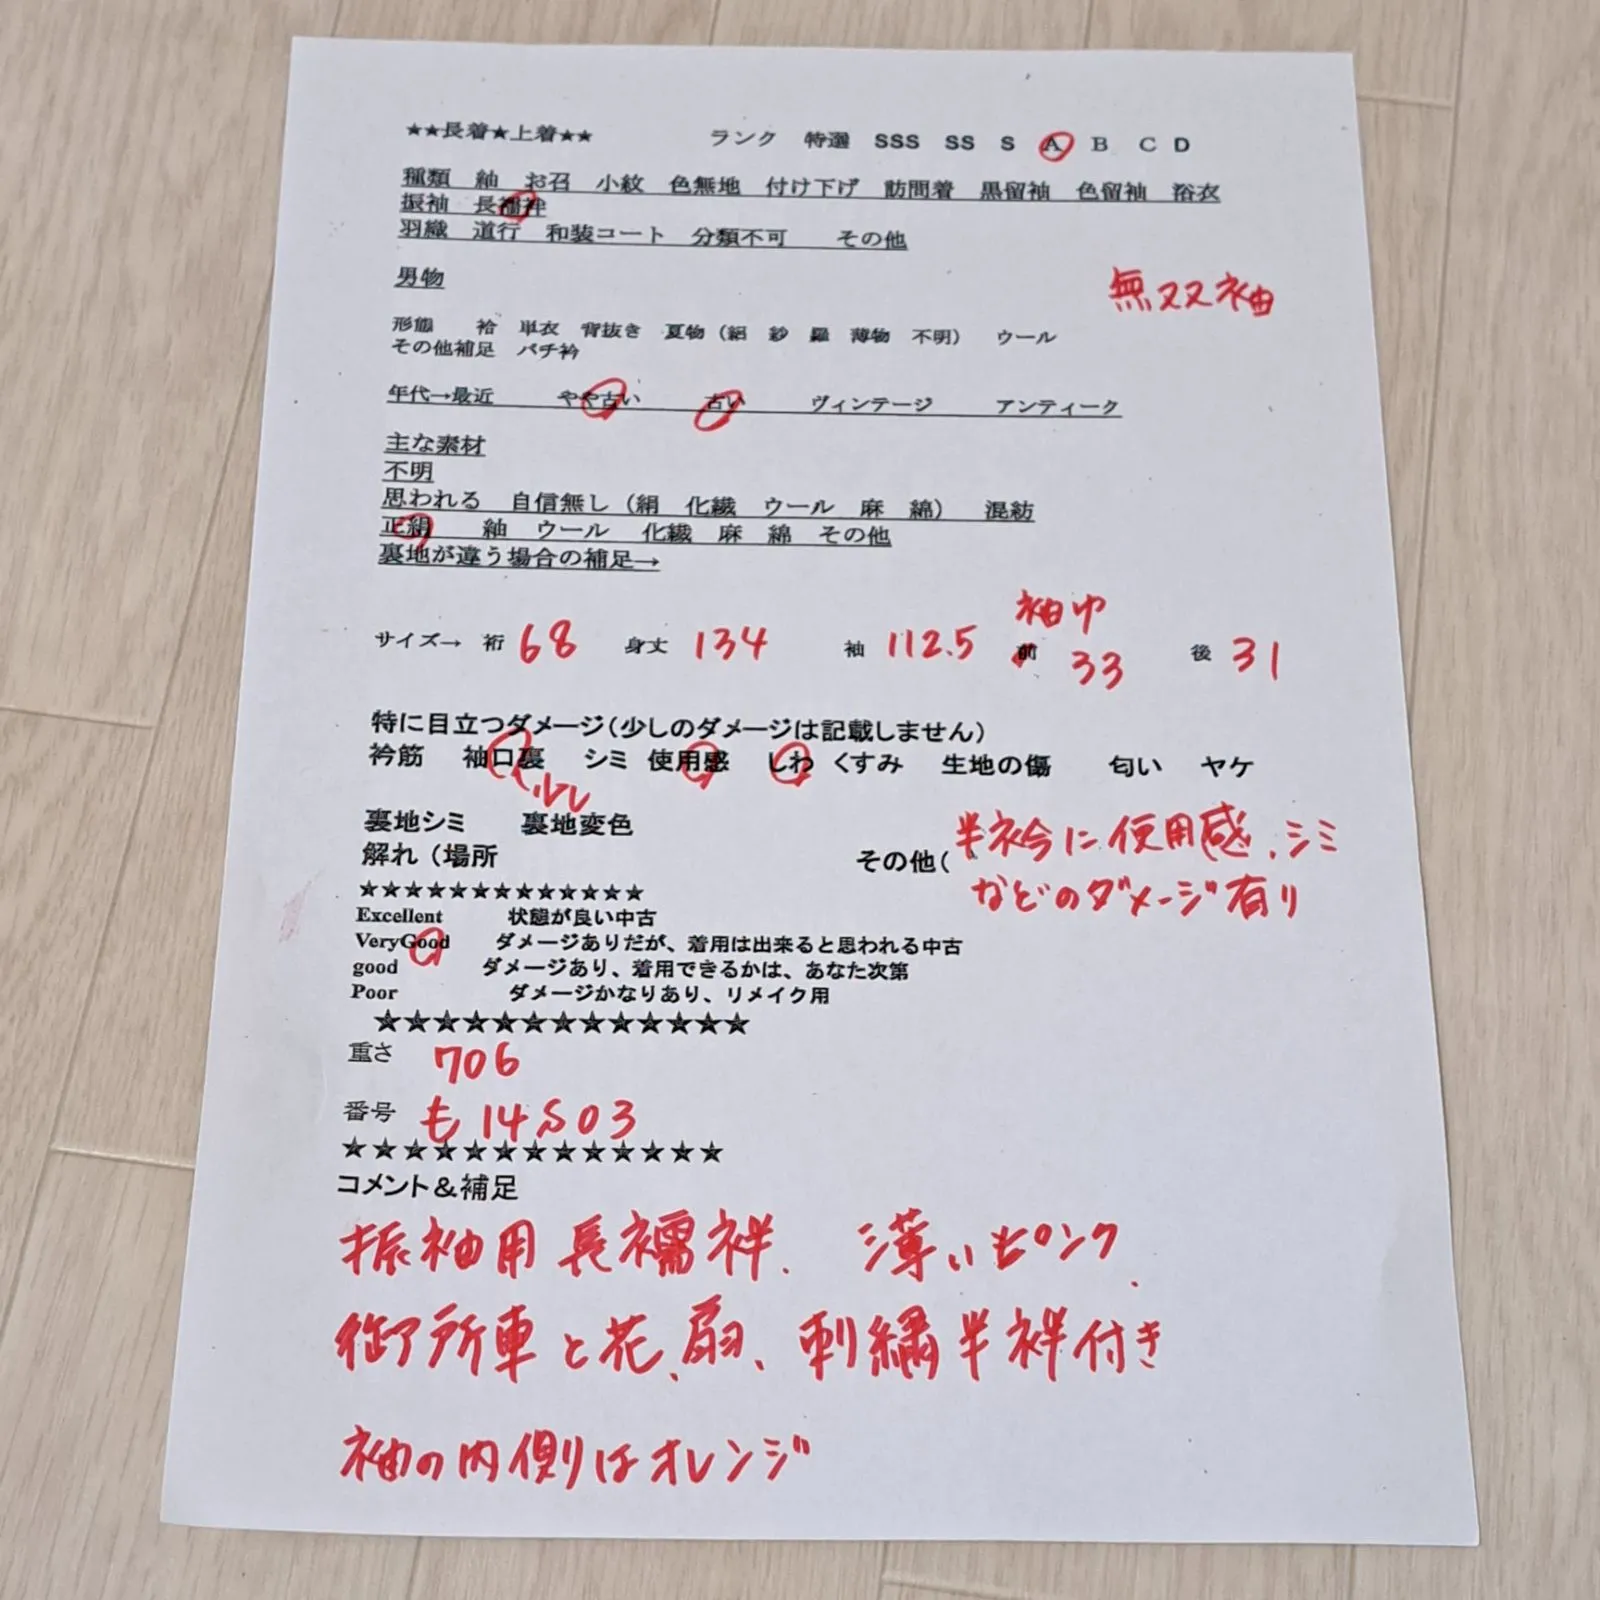 ★★長着★上着★★　ランク　特選　SSS　SS　S　A　B　C　D
種類　紬　お召　小紋　色無地　付け下げ　訪問着　黒留袖　色留袖　浴衣
振袖　長襦袢
羽織　道行　和装コート　分類不可　その他
男物
無双袖
形態　袷　単衣　背抜き　夏物（絽　紗　羅　薄物　不明）　ウール
その他補足　バチ衿
年代→最近　やや古い　古い　ヴィンテージ　アンティーク
主な素材
不明
思われる　自信無し（絹　化繊　ウール　麻　綿）　混紡
正絹　紬　ウール　化繊　麻　綿　その他
裏地が違う場合の補足→
袖巾
サイズ→　裄　68　身丈　134　袖　112.5　前　33　後　31
特に目立つダメージ（少しのダメージは記載しません）
衿筋　袖口裏　シミ　使用感　しわ　くすみ　生地の傷　匂い　ヤケ
少し
裏地シミ　裏地変色
解れ（場所　その他（半衿に使用感、シミ
などのダメージ有り
★★★★★★★★★★★★★
Excellent　状態が良い中古
VeryGood　ダメージありだが、着用は出来ると思われる中古
good　ダメージあり、着用できるかは、あなた次第
Poor　ダメージかなりあり、リメイク用
★★★★★★★★★★★★★
重さ　706
番号　も14S03
★★★★★★★★★★★★★
コメント＆補足
振袖用長襦袢、薄いピンク、
御所車と花、扇、刺繍半袢付き
袖の内側はオレンジ